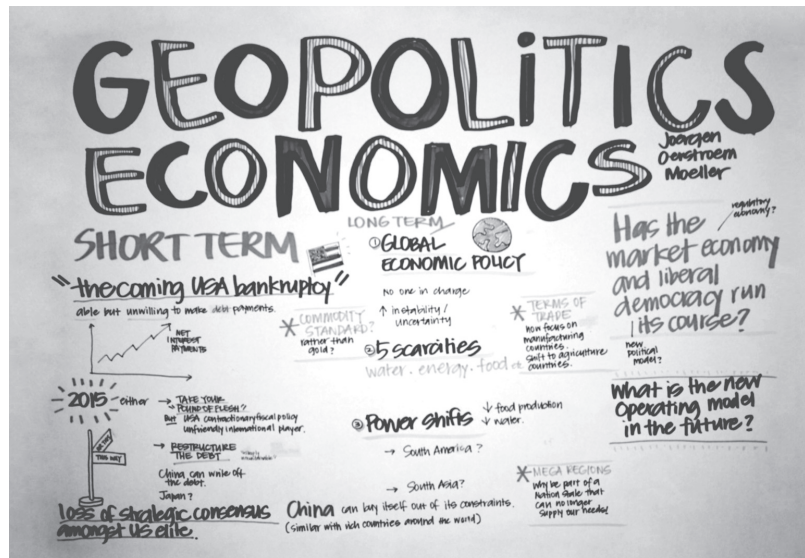 GEOPOLITICS
ECONOMICS
Joergen
Oerstroem
Moeller
SHORT TERM
"the coming USA bankruptcy"
able but unwilling to make debt payments.
NET
INTEREST
PAYMENTS
2015 either
→ TAKE YOUR
"POUND OF FLESH"?
But USA contractionary fiscal policy
unfriendly international player.
→ RESTRUCTURE
THE DEBT
China can write off
the debt.
Japan?
THIS WAY
loss of strategic consensus
amongst US elite.
LONG TERM
① GLOBAL
ECONOMIC POLICY
No one in charge
↑ instability/
uncertainty
* COMMODITY
STANDARD?
rather than
gold?
* TERMS OF
TRADE
now focus on
manufacturing
countries.
shift to agriculture
countries.
② 5 scarcities
water. energy. food etc
③ Power shifts
↓ food production
↓ water.
→ South America?
→ South Asia?
China can buy itself out of its constraints.
(similar with rich countries around the world)
* MEGA REGIONS
why be part of a
Nation State that
can no longer
supply our needs!
Has the
market economy
and liberal
democracy run
its course?
regulatory
economy?
new
political
model?
What is the new
operating model
in the future?